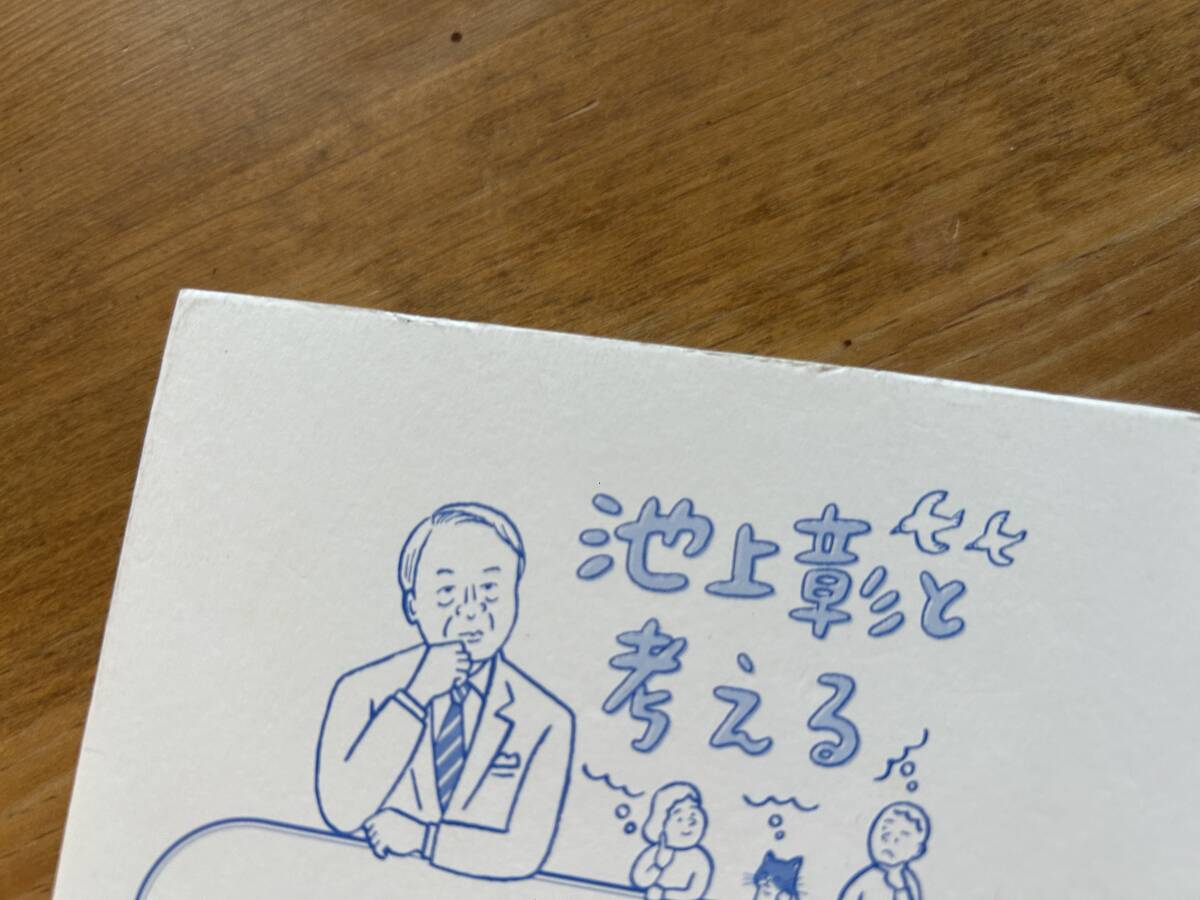 池上彰と
考える